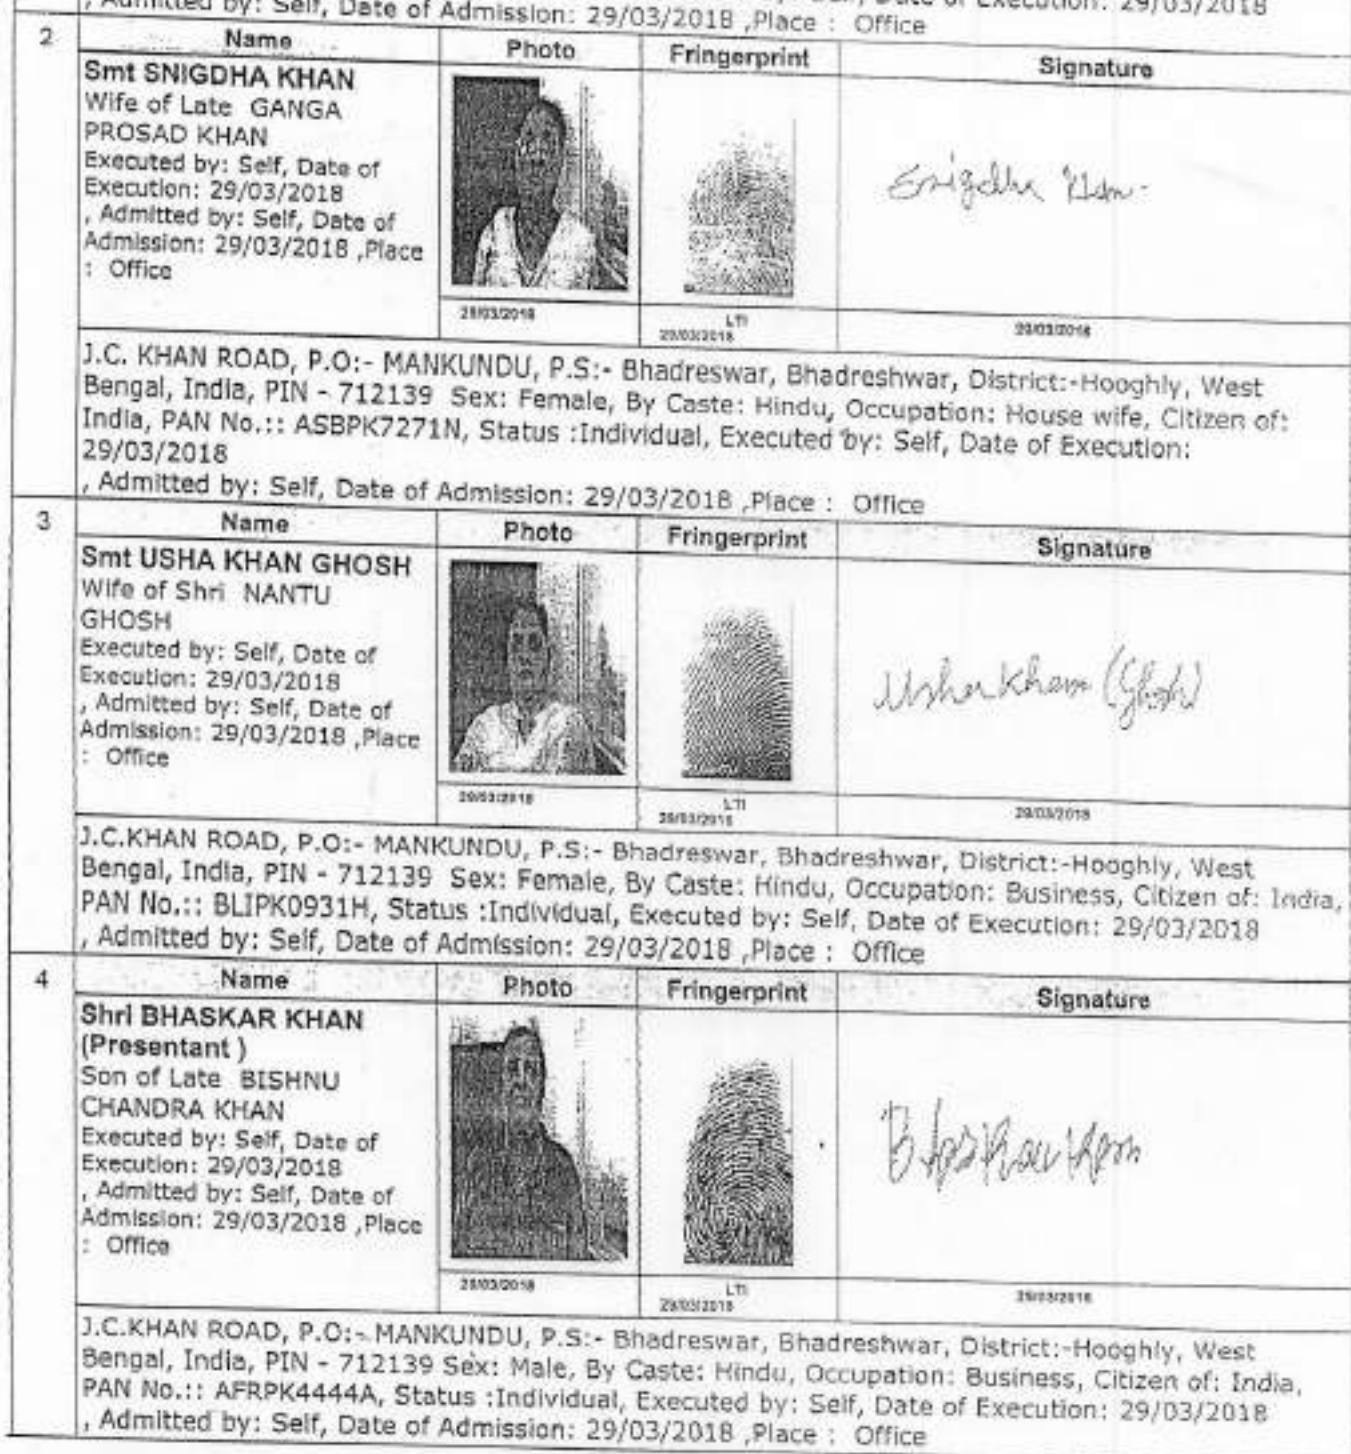 , Admitted by: Self, Date of Admission: 29/03/2018 ,Place : Office
2
Name Photo Fringerprint Signature
Smt SNIGDHA KHAN
Wife of Late GANGA
PROSAD KHAN
Executed by: Self, Date of
Execution: 29/03/2018
, Admitted by: Self, Date of
Admission: 29/03/2018 ,Place
: Office
Snigdha Khan
29/03/2018 LTI 29/03/2018 29/03/2018
J.C. KHAN ROAD, P.O:- MANKUNDU, P.S:- Bhadreswar, Bhadreshwar, District:-Hooghly, West
Bengal, India, PIN - 712139 Sex: Female, By Caste: Hindu, Occupation: House wife, Citizen of:
India, PAN No.:: ASBPK7271N, Status :Individual, Executed by: Self, Date of Execution:
29/03/2018
, Admitted by: Self, Date of Admission: 29/03/2018 ,Place : Office
3
Name Photo Fringerprint Signature
Smt USHA KHAN GHOSH
Wife of Shri NANTU
GHOSH
Executed by: Self, Date of
Execution: 29/03/2018
, Admitted by: Self, Date of
Admission: 29/03/2018 ,Place
: Office
Usha Khan (Ghosh)
29/03/2018 LTI 29/03/2018 29/03/2018
J.C.KHAN ROAD, P.O:- MANKUNDU, P.S:- Bhadreswar, Bhadreshwar, District:-Hooghly, West
Bengal, India, PIN - 712139 Sex: Female, By Caste: Hindu, Occupation: Business, Citizen of: India,
PAN No.:: BLIPK0931H, Status :Individual, Executed by: Self, Date of Execution: 29/03/2018
, Admitted by: Self, Date of Admission: 29/03/2018 ,Place : Office
4
Name Photo Fringerprint Signature
Shri BHASKAR KHAN
(Presentant )
Son of Late BISHNU
CHANDRA KHAN
Executed by: Self, Date of
Execution: 29/03/2018
, Admitted by: Self, Date of
Admission: 29/03/2018 ,Place
: Office
Bhaskar Khan
29/03/2018 LTI 29/03/2018 29/03/2018
J.C.KHAN ROAD, P.O:- MANKUNDU, P.S:- Bhadreswar, Bhadreshwar, District:-Hooghly, West
Bengal, India, PIN - 712139 Sex: Male, By Caste: Hindu, Occupation: Business, Citizen of: India,
PAN No.:: AFRPK4444A, Status :Individual, Executed by: Self, Date of Execution: 29/03/2018
, Admitted by: Self, Date of Admission: 29/03/2018 ,Place : Office